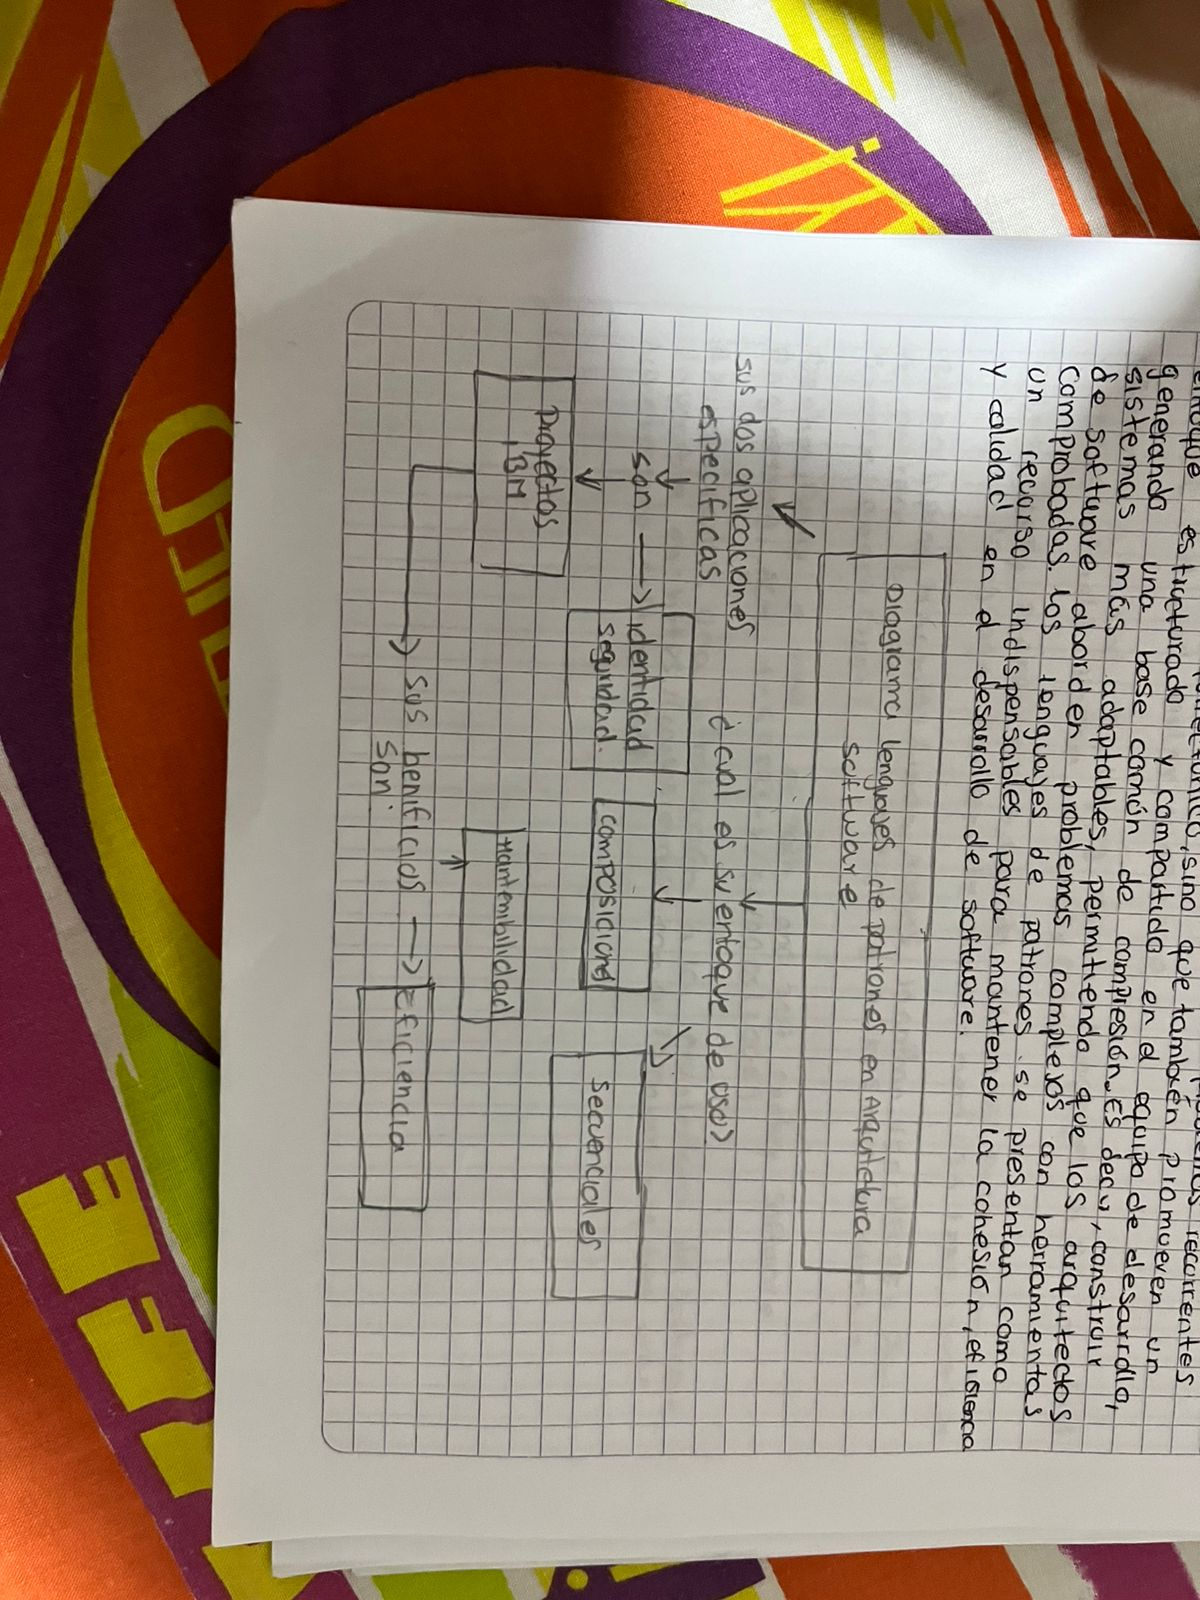 enfoque estructurado y compartido en el equipo de desarrollo,
generando una base común de compresión. Es decir, construir
sistemas más adaptables, permitiendo que los arquitectos
de software aborden problemas complejos con herramientas
comprobadas. los lenguajes de patrones se presentan como
un recurso indispensables para mantener la cohesión, eficiencia
y calidad en el desarrollo de software.
Diagrama lenguajes de patrones en Arquitectura
software
sus dos aplicaciones
especificas
¿cual es su enfoque de uso?
son
identidad
seguridad.
composicional
secuenciales
Proyectos
IBM
Mantenibilidad
sus benificios
son:
Eficiencia
LIFE